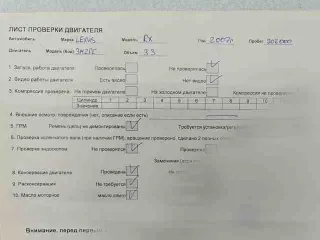 ЛИСТ ПРОВЕРКИ ДВИГАТЕЛЯ
Автомобиль Марка LEXUS Модель RX Год 2007г Пробег 202000
Двигатель Модель (Код) 3MZFE Объем 3.3
1. Запуск, работа двигателя Проверялась Не проверялась
2. Видео работы двигателя Есть видео Нет видео
3. Компрессия проверена: На горячем двигателе На холодном двигателе Компрессия не проверена
Цилиндр 1 2 3 4 5 6 7 8 9 10
Значение
4. Внешний осмотр: повреждения (нет, описание если есть)
5. ГРМ Ремень (цепь) не демонтирован Требуется установка
6. Проверка коленчатого вала (при наличии ГРМ) вращение проверено, сделано 2 полных
7. Проверка эндоскопом Не проверялся
Замечания
8. Консервация двигателя Проведена
9. Расконсервация Не требуется
10. Масло моторное масло слито
Внимание, перед первым